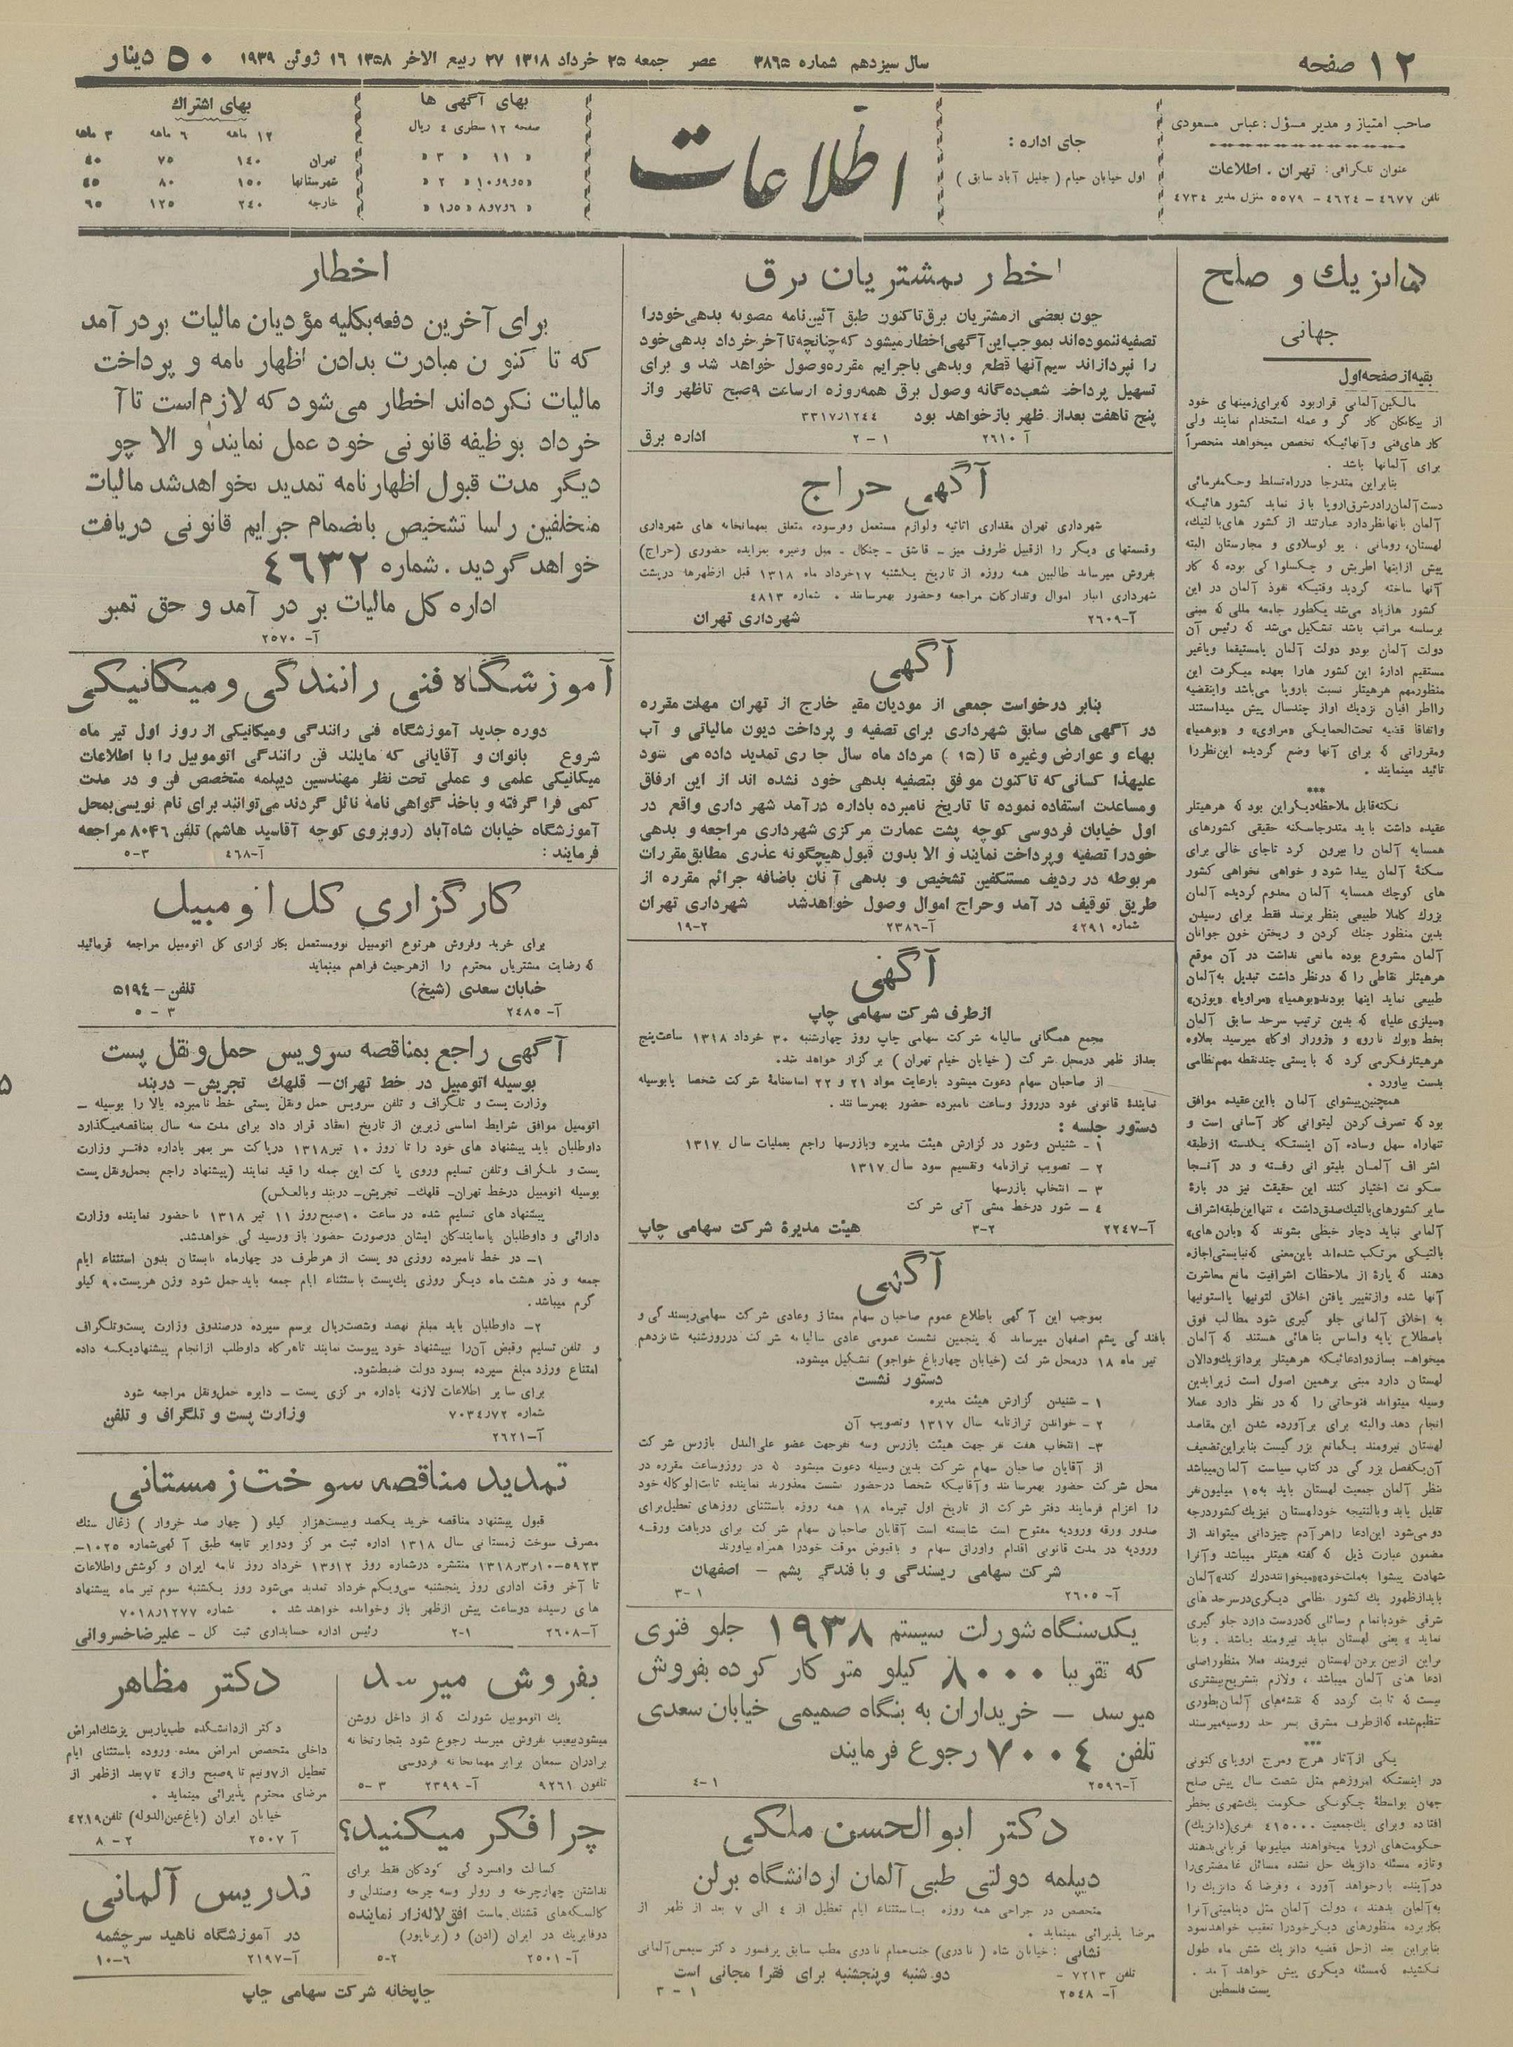 ۱۲ صفحه
سال سیزدهم شماره ۳۸۶۵ عصر جمعه ۲۵ خرداد ۱۳۱۸ ۲۷ ربیع الاخر ۱۳۵۸ ۱۶ ژوئن ۱۹۳۹
۵۰ دینار
صاحب امتیاز و مدیر مسؤل : عباس مسعودی
عنوان تلگرافی : تهران . اطلاعات
تلفن ۴۶۷۷ - ۴۶۲۴ - ۵۵۷۹ منزل مدیر ۴۷۳۴
جای اداره :
اول خیابان خیام ( جلیل آباد سابق )
اطلاعات
بهای آگهی ها
صفحه ۱۲ سطری ۴ ریال
« ۱۱ « ۳ «
« ۱۰و۹و۵ « ۲ «
بهای اشتراک
۱۲ ماهه ۶ ماهه ۳ ماهه
تهران ۱۴۰ ۷۵ ۴۰
شهرستانها ۱۵۰ ۸۰ ۴۵
خارجه ۲۴۰ ۱۲۵ ۶۵
دانزیک و صلح
جهانی
بقیه از صفحه اول
مالکین آلمانی قرار بود که برای زمینهای خود
از بیگانگان کار گر و عمله استخدام نمایند ولی
کار های فنی و آنهائیکه تخصص میخواهد منحصراً
برای آلمانها باشد .
بنابراین متدرجا در راه تسلط وحکمفرمائی
لهستان، رومانی ، یو گوسلاوی و مجارستان البته
پیش از اینها اطریش و چکسلواکی بوده که کار
آنها ساخته گردید وقتیکه نفوذ آلمان در این
دولت آلمان بودو دولت آلمان یامستقیما ویاغیر
مستقیم ادارهٔ این کشور هارا بعهده میگرفت این
واتفاقا قضیه تحت‌الحمایگی «مراوی» و «بوهمیا»
ومقرراتی که برای آنها وضع گردیده این نظر را
تائید مینمایند .
***
نکته قابل ملاحظه دیگر این بود که هرهیتلر
عقیده داشت باید متدرجاسکنه حقیقی کشورهای
همسایه آلمان را بیرون کرد تاجای خالی برای
سکنهٔ آلمان پیدا شود و خواهی نخواهی کشور
های کوچک همسایه آلمان معدوم گردیده آلمان
بزرک کاملا طبیعی بنظر برسد فقط برای رسیدن
بدین منظور جنک کردن و ریختن خون جوانان
آلمان مشروع بوده مانعی نداشت در آن موقع
هرهیتلر نقاطی را که در نظر داشت تبدیل به آلمان
طبیعی نماید اینها بودند«بوهمیا» «مراویا» «پوزن»
«سیلزی علیا» که بدین ترتیب سرحد سابق آلمان
هرهیتلر فکر می کرد که بایستی چند نقطه مهم نظامی
بدست بیاورد .
همچنین پیشوای آلمان بااین عقیده موافق
بود که تصرف کردن لیتوانی کار آسانی است و
تنهاراه سهل وساده آن اینستکه یکدسته از طبقه
اشراف آلمان بلیتوانی رفته و در آنجا
سکونت اختیار کنند این حقیقت نیز در بارهٔ
سایر کشورهای بالتیک صدق داشت ، تنها این طبقه اشراف
آلمانی نباید دچار خبطی بشوند که «بارن های»
بالتیکی مرتکب شده‌اند باین معنی که نبایستی اجازه
دهند که پارهٔ از ملاحظات اشرافیت مانع معاشرت
آنها شده وازتغییر یافتن اخلاق لتونیها یااستونیها
به اخلاق آلمانی جلو گیری شود مطالب فوق
باصطلاح پایه واساس بناهائی هستند که آلمان
لهستان دارد مبنی برهمین اصول است زیرا بدین
وسیله میتواند فتوحاتی را که در نظر دارد عملا
انجام دهد والبته برای برآورده شدن این مقاصد
لهستان نیرومند یکمانع بزرگیست بنابراین تضعیف
آن یکفصل بزرگی در کتاب سیاست آلمان میباشد
بنظر آلمان جمعیت لهستان باید به ۱۵ میلیون نفر
تقلیل یابد وبالنتیجه خود لهستان نیز یک کشور درجه
مضمون عبارت ذیل که گفته هیتلر میباشد و آنرا
باید از ظهور یک کشور نظامی دیگری در سرحد های
شرقی خود باتمام وسائلی که در دست دارد جلو گیری
نماید » یعنی لهستان نباید نیرومند باشد . وبنا
براین از بین بردن لهستان نیرومند فعلا منظور اصلی
نیست که ثابت گردد که نقشه‌های آلمان بطوری
تنظیم شده که از طرف مشرق بسر حد روسیه میرسند
***
یکی از آثار هرج ومرج اروپای کنونی
در اینستکه امروزهم مثل شصت سال پیش صلح
جهان بواسطهٔ چگونگی حکومت یک شهری بخطر
افتاده وبرای یک جمعیت ۴۱۵۰۰۰ نفری(دانزیک)
حکومت‌های اروپا میخواهند میلیونها قربانی بدهند
وتازه مسئله دانزیک حل نشده مسائل غامضتری را
در آینده بارخواهد آورد ، وفرضا که دانزیک را
به آلمان بدهند ، دولت آلمان مثل دینامیتی آنرا
بکاربرده منظورهای دیگر خودرا تعقیب خواهد نمود
بنابراین بعد از حل قضیه دانزیک شش ماه طول
نکشیده که مسئله دیگری پیش خواهد آمد .
پست فلسطین
اخطار بمشتریان برق
چون بعضی از مشتریان برق تاکنون طبق آئین نامه مصوبه بدهی خودرا
تصفیه ننموده‌اند بموجب این آگهی اخطار میشود که چنانچه تا آخر خرداد بدهی خود
را نپردازند سیم آنها قطع وبدهی باجرایم مقرره وصول خواهد شد و برای
تسهیل پرداخت شعب ده گانه وصول برق همه روزه از ساعت ۹صبح تاظهر واز
پنج تاهفت بعداز ظهر باز خواهد بود ۳۳۱۷٫۱۲۴۴
آ ۲۶۱۰ ۱ - ۲ اداره برق
آگهی حراج
شهرداری تهران مقداری اثاثیه ولوازم مستعمل وفرسوده متعلق بمهمانخانه های شهرداری
وقسمتهای دیگر را از قبیل ظروف میز - قاشق - چنگال - مبل وغیره بمزایده حضوری (حراج)
بفروش میرساند طالبین همه روزه از تاریخ یکشنبه ۱۷خرداد ماه ۱۳۱۸ قبل از ظهرها در پشت
شهرداری انبار اموال وتدارکات مراجعه وحضور بهمرسانند . شماره ۴۸۱۳
آ-۲۶۰۹ شهرداری تهران
آگهی
بنابر درخواست جمعی از مودیان مقیم خارج از تهران مهلت مقرره
در آگهی های سابق شهرداری برای تصفیه و پرداخت دیون مالیاتی و آب
بهاء و عوارض وغیره تا (۱۵) مرداد ماه سال جاری تمدید داده می شود
علیهذا کسانی که تاکنون موفق بتصفیه بدهی خود نشده اند از این ارفاق
ومساعدت استفاده نموده تا تاریخ نامبرده باداره درآمد شهرداری واقع در
اول خیابان فردوسی کوچه پشت عمارت مرکزی شهرداری مراجعه و بدهی
خودرا تصفیه وپرداخت نمایند و الا بدون قبول هیچگونه عذری مطابق مقررات
مربوطه در ردیف مستنکفین تشخیص و بدهی آنان باضافه جرائم مقرره از
طریق توقیف در آمد وحراج اموال وصول خواهدشد شهرداری تهران
شماره ۴۲۹۱ آ-۲۳۸۶ ۲-۱۹
آگهی
ازطرف شرکت سهامی چاپ
مجمع همگانی سالیانه شرکت سهامی چاپ روز چهارشنبه ۳۰ خرداد ۱۳۱۸ ساعت پنج
بعداز ظهر درمحل شرکت ( خیابان خیام تهران ) برگزار خواهد شد.
از صاحبان سهام دعوت میشود بارعایت مواد ۲۱ و ۲۲ اساسنامهٔ شرکت شخصا یابوسیله
نمایندهٔ قانونی خود درروز وساعت نامبرده حضور بهمرسانند .
دستور جلسه :
۱ - شنیدن وشور در گزارش هیئت مدیره وبازرسها راجع بعملیات سال ۱۳۱۷
۲ - تصویب ترازنامه وتقسیم سود سال ۱۳۱۷
۳ - انتخاب بازرسها
۴ - شور درخط مشی آتی شرکت
آ-۲۲۴۷ ۲-۳ هیئت مدیرهٔ شرکت سهامی چاپ
آگهی
بموجب این آگهی باطلاع عموم صاحبان سهام ممتاز وعادی شرکت سهامی ریسندگی و
بافندگی پشم اصفهان میرساند که پنجمین نشست عمومی عادی سالیانه شرکت درروز شنبه شانزدهم
تیر ماه ۱۸ درمحل شرکت (خیابان چهارباغ خواجو) تشکیل میشود.
دستور نشست
۱ - شنیدن گزارش هیئت مدیره
۲ - خواندن ترازنامه سال ۱۳۱۷ وتصویب آن
۳- انتخاب هفت نفر جهت هیئت بازرس وسه نفر جهت عضو علی‌البدل بازرس شرکت
از آقایان صاحبان سهام شرکت بدین وسیله دعوت میشود که در روزوساعت مقرره در
محل شرکت حضور بهمرسانند و آقانیکه شخصا درحضور نشست معذورند نماینده ثابت‌الوکاله خود
را اعزام فرمایند دفتر شرکت از تاریخ اول تیرماه ۱۸ همه روزه باستثنای روزهای تعطیل برای
صدور ورقه ورودیه مفتوح است شایسته است آقایان صاحبان سهام شرکت برای دریافت ورقه
ورودیه در مدت قانونی اقدام واوراق سهام و یاقبوض موقت خودرا همراه بیاورند
شرکت سهامی ریسندگی و بافندگی پشم - اصفهان
آ- ۲۶۰۵ ۱-۳
یکدستگاه شورلت سیستم ۱۹۳۸ جلو فنری
که تقریبا ۸۰۰۰ کیلو متر کار کرده بفروش
میرسد - خریداران به بنگاه صمیمی خیابان سعدی
تلفن ۷۰۰۴ رجوع فرمایند
آ-۲۵۹۶ ۱-۴
دکتر ابوالحسن ملکی
دیپلمه دولتی طبی آلمان ازدانشگاه برلن
متخصص در جراحی همه روزه باستثناء ایام تعطیل از ۴ الی ۷ بعد از ظهر از
مرضا پذیرائی مینماید .
نشانی : خیابان شاه ( نادری) جنب حمام نادری مطب سابق پرفسور دکتر سیمس آلمانی
تلفن ۷۲۱۳ - دوشنبه وپنجشنبه برای فقرا مجانی است
آ- ۲۵۴۸ ۱ - ۳
اخطار
برای آخرین دفعه بکلیه مؤدیان مالیات بردرآمد
که تا کنون مبادرت بدادن اظهار نامه و پرداخت
مالیات نکرده‌اند اخطار می‌شود که لازم است تا آ
خرداد بوظیفه قانونی خود عمل نمایند و الا چو
دیگر مدت قبول اظهار نامه تمدید نخواهدشد مالیات
متخلفین راسا تشخیص بانضمام جرایم قانونی دریافت
خواهد گردید . شماره ۴۶۳۲
اداره کل مالیات بر در آمد و حق تمبر
آ- ۲۵۷۰
آموزشگاه فنی رانندگی ومیکانیکی
دوره جدید آموزشگاه فنی رانندگی ومیکانیکی از روز اول تیر ماه
شروع بانوان و آقایانی که مایلند فن رانندگی اتوموبیل را با اطلاعات
میکانیکی علمی و عملی تحت نظر مهندسین دیپلمه متخصص فن و در مدت
کمی فرا گرفته و باخذ گواهی نامه نائل گردند می‌توانند برای نام نویسی بمحل
آموزشگاه خیابان شاه‌آباد (روبروی کوچه آقاسید هاشم) تلفن ۸۰۴۶ مراجعه
فرمایند : آ-۴۶۸ ۳-۵
کارگزاری کل اتومبیل
برای خرید وفروش هرنوع اتومبیل نوومستعمل بکار گزاری کل اتومبیل مراجعه فرمائید
که رضایت مشتریان محترم را ازهرحیث فراهم مینماید
خیابان سعدی (شیخ) تلفن - ۵۱۹۴
آ- ۲۴۸۵ ۳ - ۵
آگهی راجع بمناقصه سرویس حمل ونقل پست
بوسیله اتومبیل در خط تهران - قلهک تجریش - دربند
وزارت پست و تلگراف و تلفن سرویس حمل ونقل پستی خط نامبرده بالا را بوسیله -
اتومبیل موافق شرایط اساسی زیرین از تاریخ انعقاد قرار داد برای مدت سه سال بمناقصه میگذارد
داوطلبان باید پیشنهاد های خود را تا روز ۱۰ تیر ۱۳۱۸ درپاکت سر بمهر باداره دفتر وزارت
پست و تلگراف وتلفن تسلیم وروی پاکت این جمله را قید نمایند (پیشنهاد راجع بحمل ونقل پست
بوسیله اتومبیل درخط تهران- قلهک- تجریش- دربند وبالعکس)
پیشنهاد های تسلیم شده در ساعت ۱۰صبح روز ۱۱ تیر ۱۳۱۸ باحضور نماینده وزارت
دارائی و داوطلبان یانمایندگان ایشان درصورت حضور باز ورسیدگی خواهدشد.
۱- در خط نامبرده روزی دو پست از هرطرف در چهارماه تابستان بدون استثناء ایام
جمعه و در هشت ماه دیگر روزی یک پست باستثناء ایام جمعه باید حمل شود وزن هرپست ۹۰ کیلو
گرم میباشد.
۲- داوطلبان باید مبلغ نهصد وشصت ریال برسم سپرده درصندوق وزارت پست وتلگراف
و تلفن تسلیم وقبض آن را بپیشنهاد خود پیوست نمایند تاهرگاه داوطلب ازانجام پیشنهادیکه داده
امتناع ورزد مبلغ سپرده بسود دولت ضبط شود.
برای سایر اطلاعات لازمه باداره مرکزی پست - دایره حمل ونقل مراجعه شود
شماره ۷۰۳۴٫۷۲ وزارت پست و تلگراف و تلفن
آ-۲۶۲۱
تمدید مناقصه سوخت زمستانی
قبول پیشنهاد مناقصه خرید یکصد وبیست هزار کیلو ( چهار صد خروار ) زغال سنک
مصرف سوخت زمستانی سال ۱۳۱۸ اداره ثبت مرکز ودوایر تابعه طبق آگهی شماره ۱۰۲۵-
۵۹۲۳-۱۰٫۳٫۱۳۱۸ منتشره درشماره روز ۱۲و۱۳ خرداد روز نامه ایران و کوشش واطلاعات
تا آخر وقت اداری روز پنجشنبه سی ویکم خرداد تمدید می‌شود روز یکشنبه سوم تیر ماه پیشنهاد
های رسیده دوساعت پیش ازظهر باز وخوانده خواهد شد . شماره ۷۰۱۸٫۱۲۷۷
آ-۲۶۰۸ ۱-۲ رئیس اداره حسابداری ثبت کل - علیرضاخسروانی
بفروش میرسد
یک اتوموبیل شورلت که از داخل روشن
میشودبیعیب بفروش میرسد رجوع شود بتجارتخانه
برادران سمعان برابر مهمانخانه فردوسی
تلفون ۹۲۶۱ آ-۲۳۹۹ ۳-۵
چرا فکر میکنید؟
کسالت وافسردگی کودکان فقط برای
نداشتن چهارچرخه و رولر وسه چرخه وصندلی و
کالسکه‌های قشنک ماست افق لاله‌زار نماینده
دوفابریک در ایران (ادن) و (برنابور)
آ-۲۵۰۱ ۲-۵
دکتر مظاهر
دکتر ازدانشکده طب پاریس پزشک امراض
داخلی متخصص امراض معده وروده باستثنای ایام
تعطیل از۷ونیم تا ۹صبح واز ۴ تا۷ بعد ازظهر از
مرضای محترم پذیرائی مینماید .
خیابان ایران (باغ عین‌الدوله) تلفن ۴۲۱۹
آ ۲۵۰۷ ۲-۸
تدریس آلمانی
در آموزشگاه ناهید سرچشمه
آ-۲۱۹۷ ۶-۱۰
چاپخانه شرکت سهامی چاپ